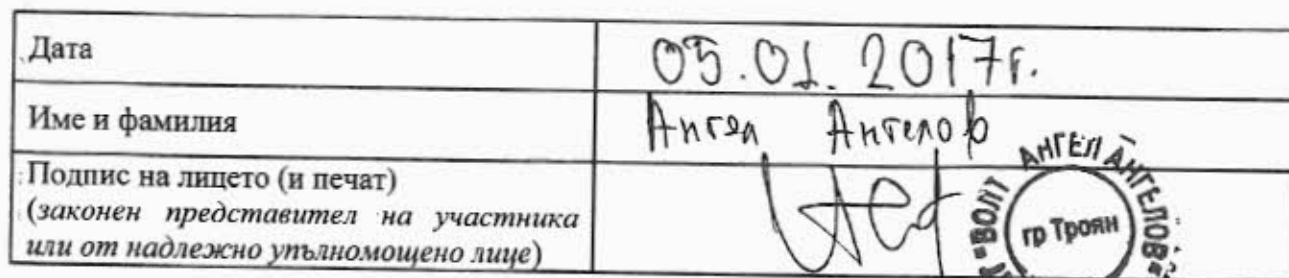 Дата
05.01.2017г.
Име и фамилия
Ангел Ангелов
Подпис на лицето (и печат)
(законен представител на участника
или от надлежно упълномощено лице)
АНГЕЛ АНГЕЛОВ
ВОЛТ
гр Троян